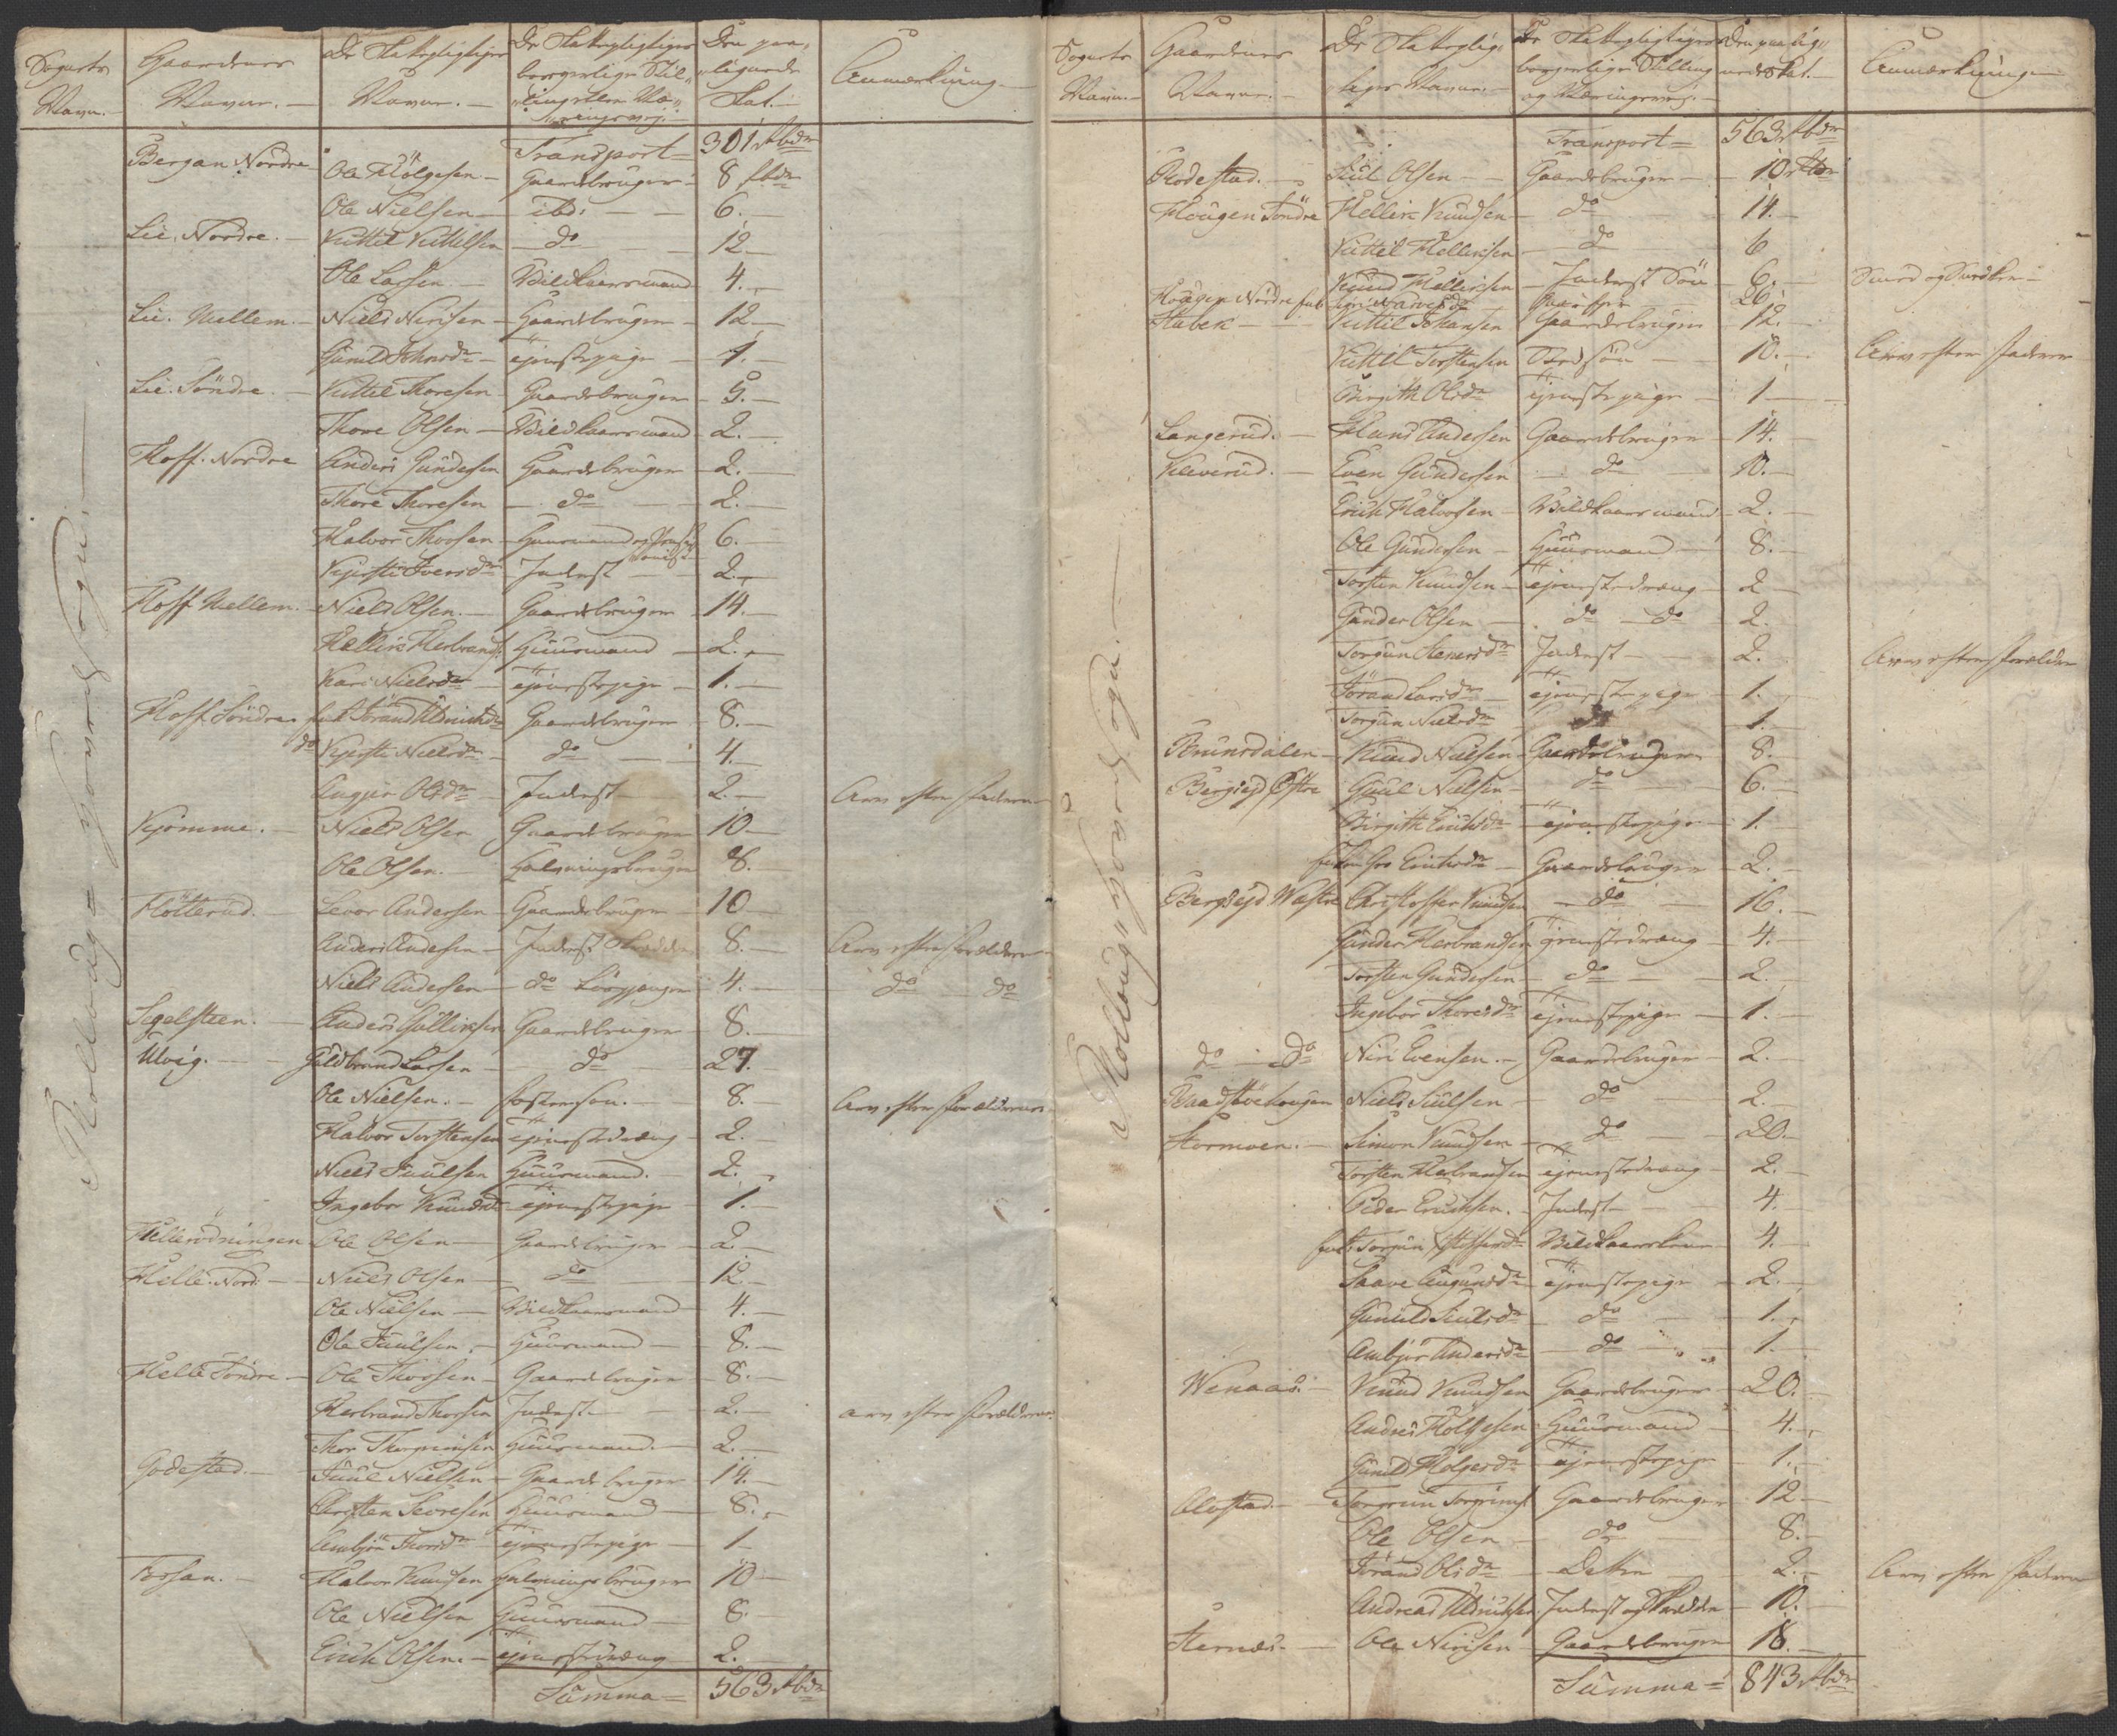 Sognets Navn.— Gaardenes Navne.— De Skattepligtiges Navne.— De Skattepligtiges borgerlige Stilling eller Næringsvej.— Den paalignede Skat.— Anmærkning—
Rollaug
Transport= 301 Rbdr
Bergan Nordre— Ole Holgesen— Gaardebruger— 8 Rbdr
Ole Nielsen— ibd:— 6.
Lie. Nordre.— Kittil Kittelsen— do 12—
Ole Larsen— Vilckaarsmand 4.—
Lie. Mellem.— Niels Nirisen— Gaardebruger— 12—
Gunild Johnsdr— Tjenestepige— 1.—
Lie. Söndre.— Kittil Thoresen— Gaardebruger— 5.—
Thore Olsen— Vilckaarsmand— 2.—
Hoff. Nordre Anders Gundersen Gaardebruger— 2.—
Thore Thoresen— do— 2.—
Halvor Thorsen— Huusmand og 6.—
Kjersti Iversdr— Inderst— 2.—
Hoff Mellem.— Niels Olsen.— Gaardebruger— 14.—
Hellik Herbrands: Huusmand— 2.—
Kari Nielsdr— Tjenestepige— 1.—
Hoff. Söndre Jörand Gaardebruger— 8.—
do Kjersti Nielsdr— do— 4.—
Olsdr— Inderst— 2.— Arv efter Faderen
Kjömme.— Niels Olsen Gaardebruger 10—
Ole Olsen.— Halvningsbruger 8.—
Flötterud.— Levor Andersen— Gaardebruger— 10
Anders Andersen— Inderst 8.— Arv efter Forældrene
Niels Andersen— do 4.— do do
Segelsteen.— Anders Gulliksen Gaardebruger— 8.—
Ulvig.— Hildbrand Larsen— do— 27.
Ole Nielsen.— Fostersön.— 8.— Arv efter Forældrene
Halvor Torstensen Tjenestedreng— 2.—
Niels Juulsen Huusmand.— 2.—
Ingebor Knudsdr Tjenestepige 1.—
Ole Olsen— Gaardebruger— 2.—
Helle. Nord:— Niels Olsen— do— 12.—
Ole Nielsen— Vilckaarsmand— 4.—
Ole Juulsen.— Huusmand— 8.—
Helle Söndre— Ole Thorsen— Gaardebruger— 8.—
Herbrand Thorsen Inderst— 2.— arv efter Forældrene
Thor Huusmand.— 2.—
Godestad.— Juul Nielsen— Gaardebruger— 14.—
Huusmand— 8.—
Thorsdr— Tjenestepige— 1—
Fosan.— Halvor Knudsen Halvningsbruger 10—
Ole Nielsen Huusmand— 8.—
Erich Olsen.— Tjenestedreng 2.
Summa= 563 Rbdr
Sognets Navn.— Gaardenes Navne.— De Skattepligtiges Navne.— De Skattepligtiges borgerlige Stilling og Næringsvej.— Den paalignede Skat.— Anmærkning—
Transport= 563 Rbdr
Rodestad.— Juul Olsen— Gaardebruger— 10 Rbdr
Hougen Söndre Hellik Knudsen— do 14.—
Kittil Helliksen— do 6
Knud Helliksen— Inderst Sön 6.—
Hougen Nordre 26.
Staben— Kittil Johansen Gaardebruger 12.—
Kittil Torstensen 10.— Arv efter Faderen
Birgith Olsdr Tjenestepige— 1—
Langerud.— Hans Andersen Gaardebruger— 14.—
Kleverud.— Even Gundersen do— 10.—
Erich Halvorsen— Vilckaarsmand— 2.—
Ole Gundersen— Huusmand— 8.—
Torsten Knudsen— Tjenestedreng— 2—
Gunder Olsen— do— do 2.
Torgun Steensdr Inderst— 2. Arv efter Forældre
Jörand Larsdr— Tjenestepige— 1.—
Torgun Nielsdr do 1.—
Brunsdalen— Knud Nielsen— Gaardebruger— 8.—
Bergsejd Östre Gjuul Nielsen— do 6.—
Birgith Erichsdr— Tjenestepige— 1.—
Erichsdr— Gaardebruger— 2.—
Bergsejd Wæstre Christoffer Knudsen— do— 16.—
Gunder Herbrandsen Tjenestedreng— 4.—
Torsten Gundersen— do— 2.
Ingebor Thoresdr Tjenestepige— 1.—
do— do Niri Evensen.— Gaardebruger— 2.—
Baadstöehougen Niels Juulsen— do— 2.—
Stormoen.— Simon Knudsen— do— 20.—
Torsten Herbrandsen Tjenestedreng— 2.—
Peder Erichsen.— Inderst— 4.—
Torgun Vilckaarskone 4.—
Saave Tjenestepige— 2.—
Gunild Juulsdr— do— 1.—
Andersdr— do— 1.—
Wenaas.— Knud Knudsen Gaardebruger— 20.—
Anders Holgesen— Huusmand— 4.—
Gunild Holgesdr— Tjenestepige— 1.—
Alvstad.— Torgrim Torgrims: Gaardebruger 12—
Ole Olsen— do— 8.—
Jörand Olsdr— Datter— 2.— Arv efter Faderen
Andreas Inderst og 10.—
Sternæs.— Ole Nirisen— Gaardebruger— 18.—
Summa= 843 Rbdr